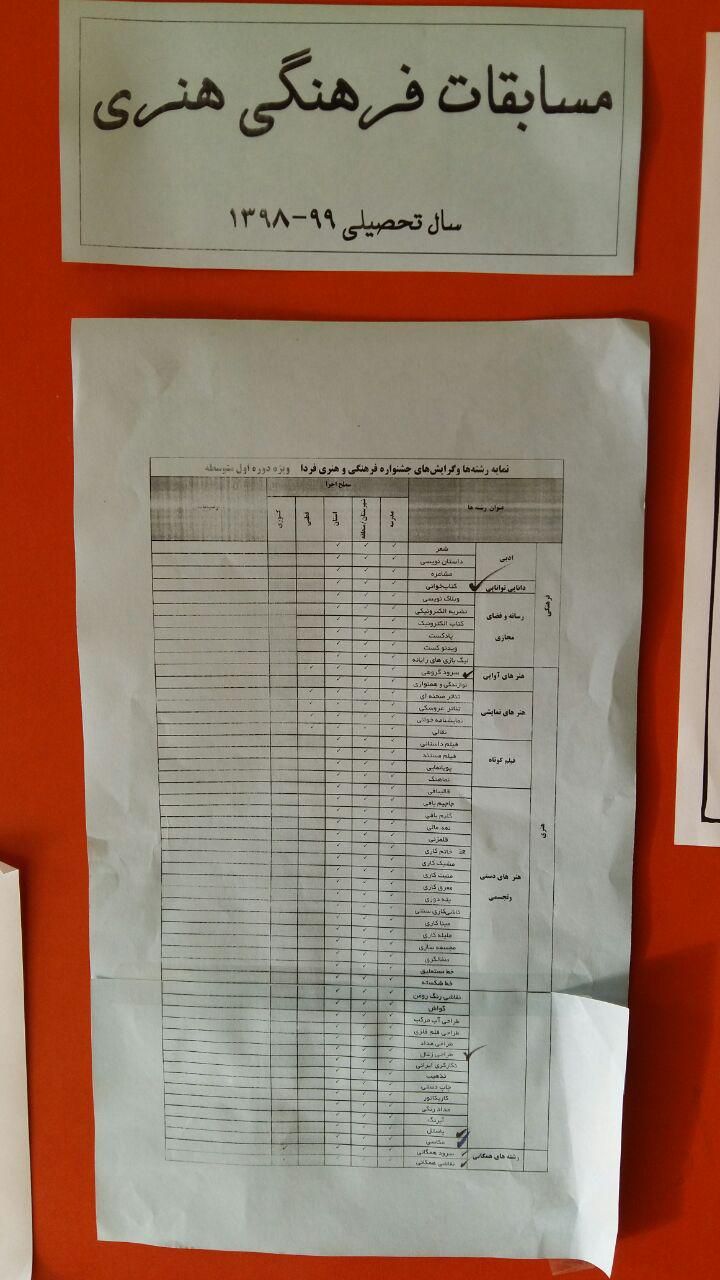 مسابقات فرهنگی هنری
سال تحصیلی ۹۹-۱۳۹۸
نمایه رشته‌ها وگرایش‌های جشنواره فرهنگی و هنری فردا ویژه دوره اول متوسطه
عنوان رشته ها
سطح اجرا
مدرسه
شهرستان/منطقه
استان
قطبی
کشوری
فرهنگی
ادبی
شعر
داستان نویسی
مشاعره
دانایی توانایی
کتاب‌خوانی
رسانه و فضای
مجازی
وبلاگ نویسی
نشریه الکترونیکی
کتاب الکترونیک
پادکست
ویدئو کست
لیگ بازی های رایانه
هنری
هنر های آوایی
سرود گروهی
نوازندگی و همنوازی
هنر های نمایشی
تئاتر صحنه ای
تئاتر عروسکی
نمایشنامه خوانی
نقالی
فیلم کوتاه
فیلم داستانی
فیلم مستند
پویانمایی
نماهنگ
هنر های دستی
وتجسمی
قالیبافی
جاجیم بافی
گلیم بافی
نمد مالی
قلمزنی
خاتم کاری
مشبک کاری
منبت کاری
معرق کاری
پته دوزی
کاشی‌کاری سنتی
مینا کاری
ملیله کاری
مجسمه سازی
سفالگری
خط نستعلیق
خط شکسته
نقاشی رنگ روغن
گواش
طراحی آب مرکب
طراحی قلم فلزی
طراحی مداد
طراحی زغال
نگارگری ایرانی
تذهیب
چاپ دستی
کاریکاتور
مداد رنگی
آبرنگ
پاستل
عکاسی
رشته های همگانی
سرود همگانی
نقاشی همگانی